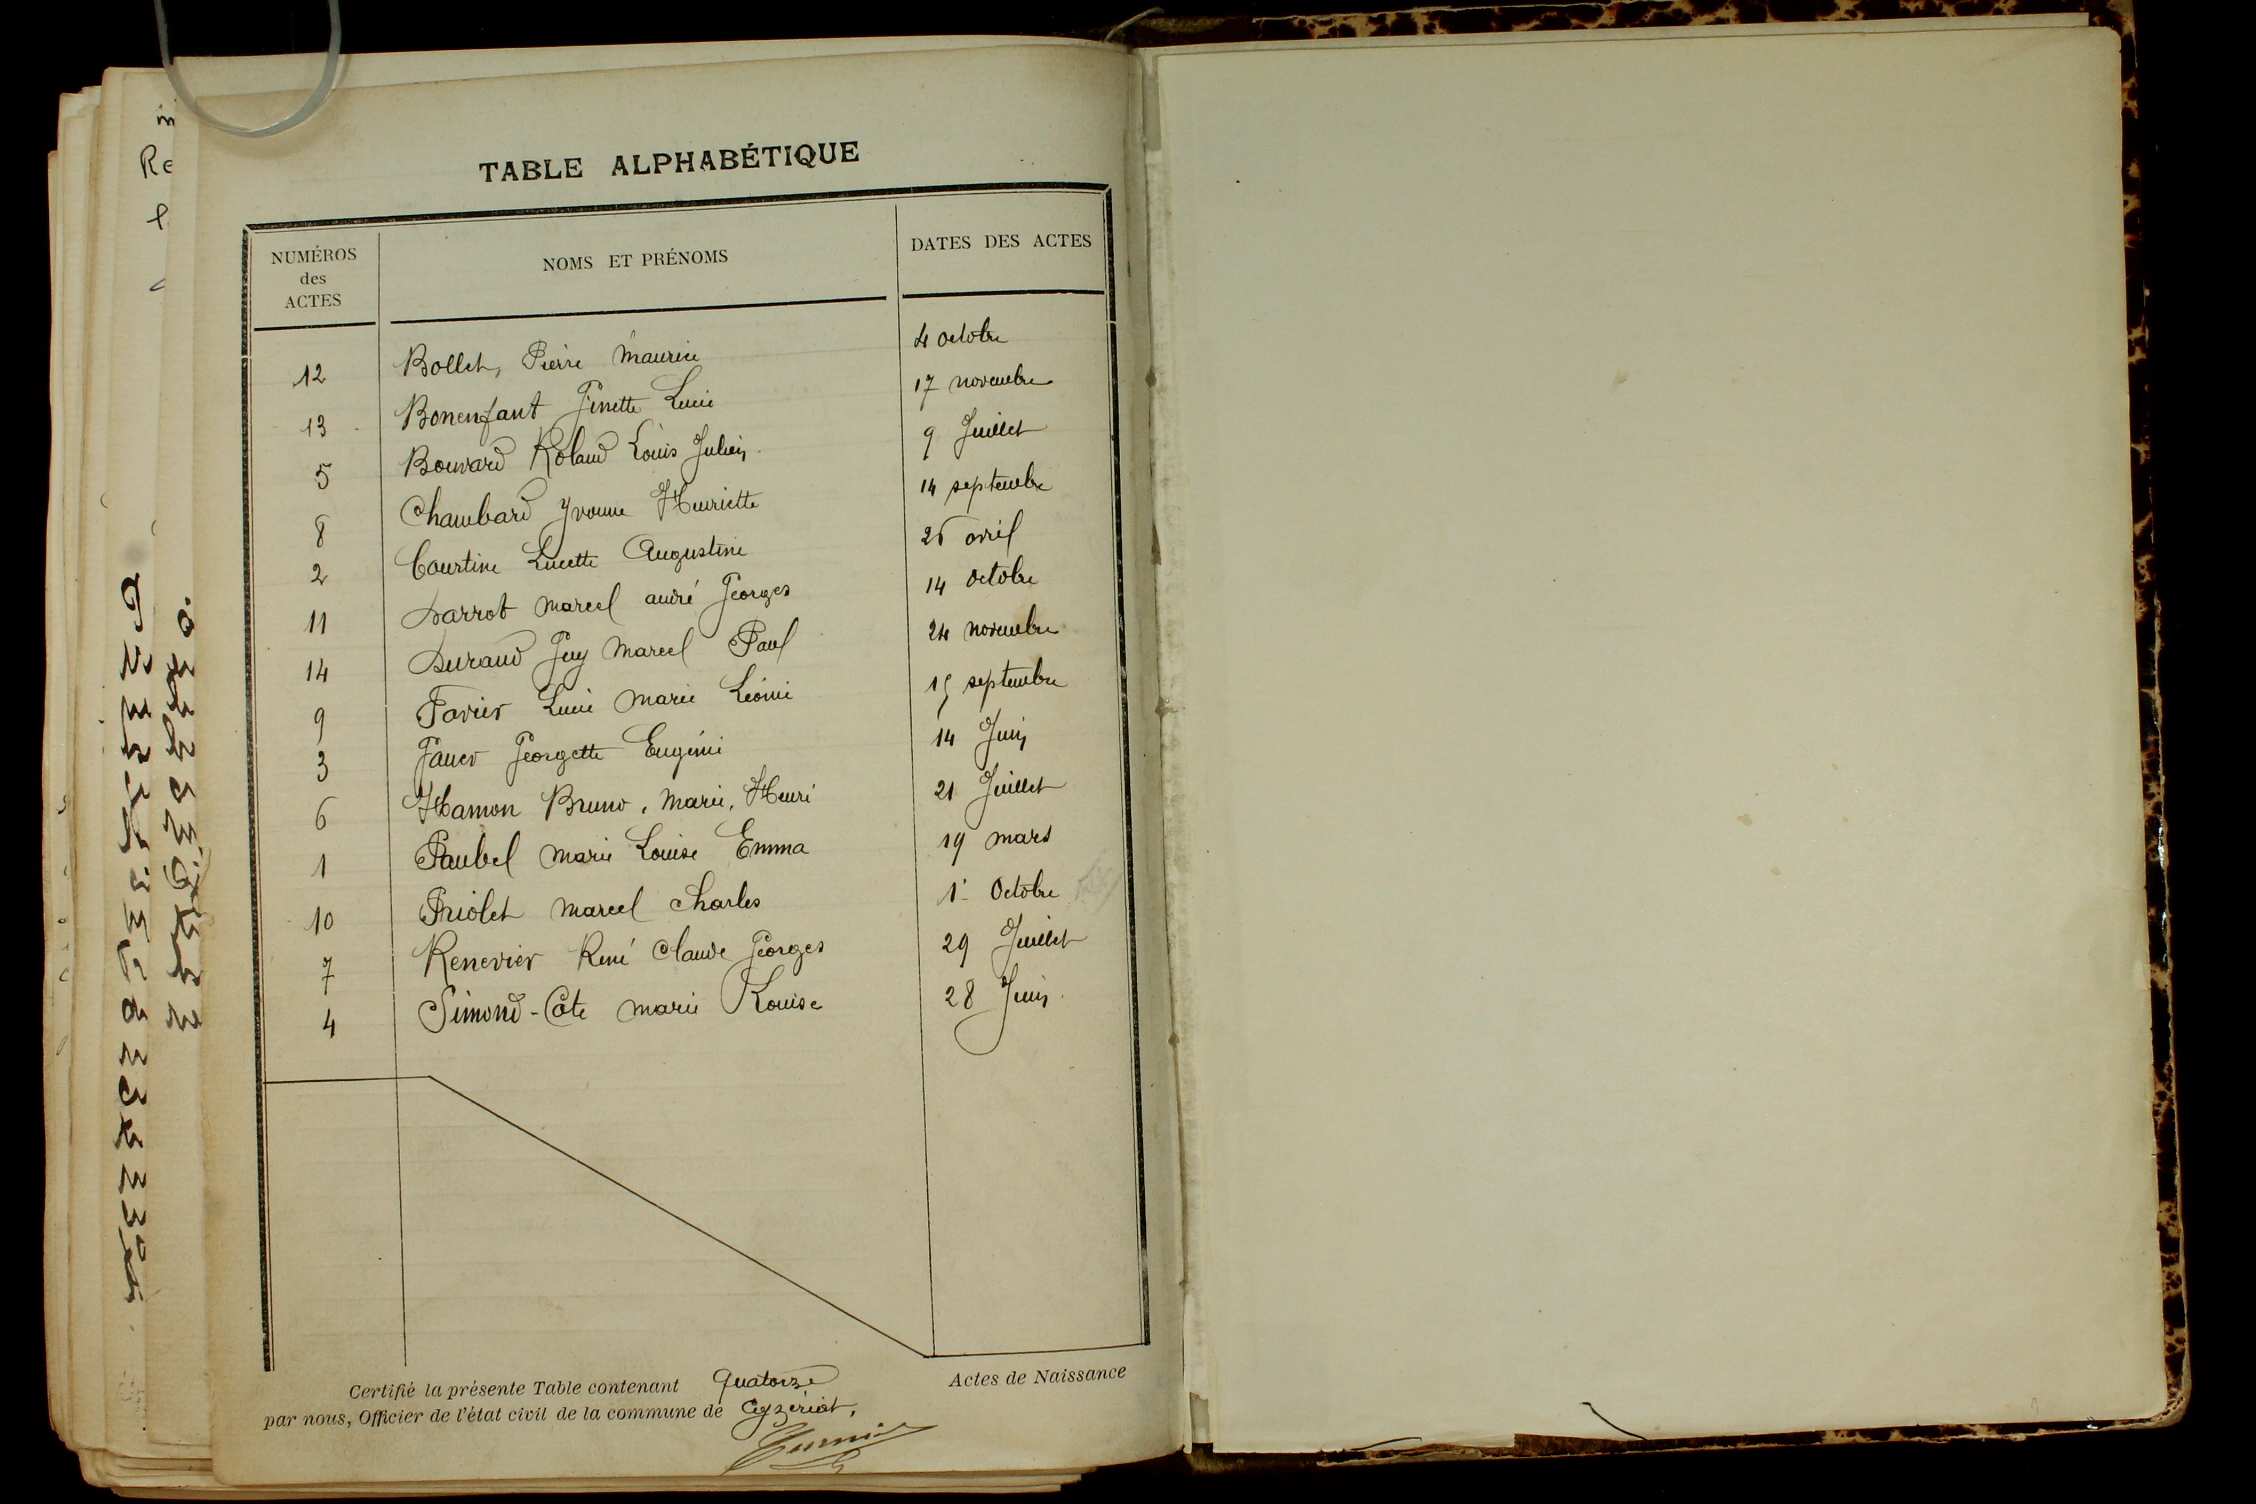 TABLE ALPHABÉTIQUE
NUMÉROS des ACTES NOMS ET PRÉNOMS DATES DES ACTES
12 Bollet, Pierre Maurice 4 octobre
13 Bonenfant Ginette Lucie 17 novembre
5 Bouvard Roland Louis Julien 9 Juillet
8 Chambard Yvonne Henriette 14 septembre
2 Courtine Lucette Augustine 26 avril
11 Darrot Marcel André Georges 14 octobre
14 Durand Guy Marcel Paul 24 novembre
9 Favier Lucie Marie Léonie 15 septembre
3 Georgette Eugénie 14 Juin
6 Hamon Bruno, Marie, Henri 21 Juillet
1 Paubel Marie Louise Emma 19 mars
10 Priolet Marcel Charles 1er Octobre
7 Renevier René Claude Georges 29 Juillet
4 Simond-Cote Marie Louise 28 Juin
Certifié la présente Table contenant quatorze Actes de Naissance
par nous, Officier de l'état civil de la commune de Ceyzériat.